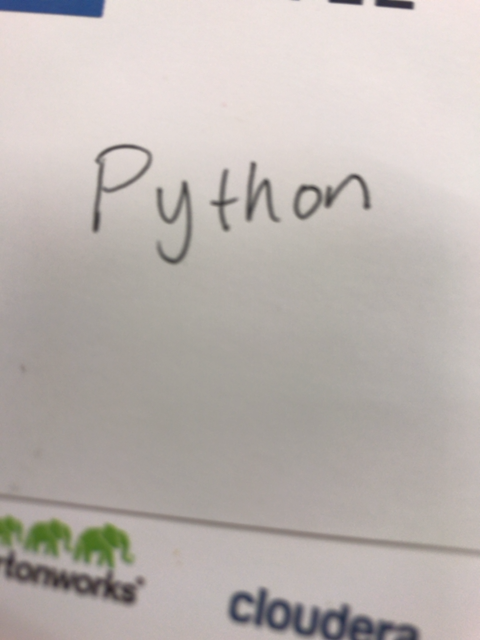 Python
rtonworks
cloudera